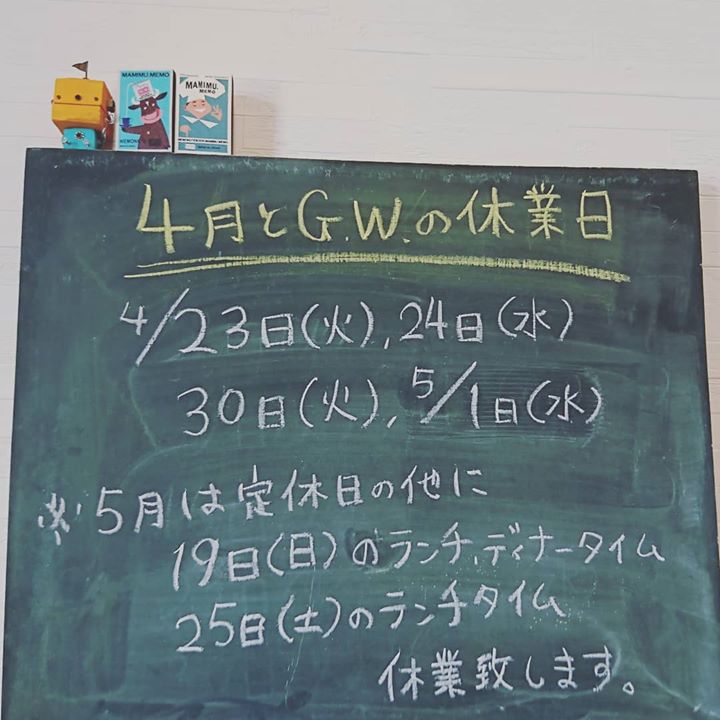 MAMIMU MEMO
MAMIMU.
MEMO
4月とG.W.の休業日
4/23日(火),24日(水)
30日(火),5/1日(水)
※5月は定休日の他に
19日(日)のランチ,ディナータイム
25日(土)のランチタイム
休業致します。